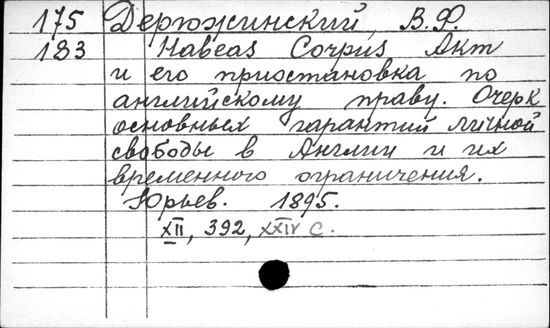 175 Дерюжинский, В.Ф.
183 Habeas Corpus Акт
и его приостановка по
английскому праву. Очерк
основных гарантий личной
свободы в Англии и их
временного ограничения.
Юрьев. 1895.
XII, 392, XXIV с.